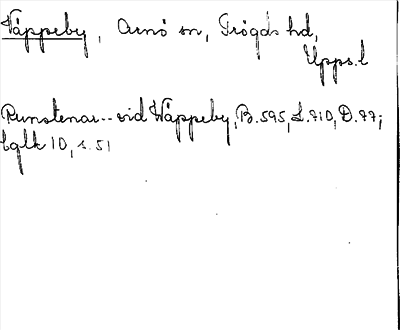 Väppeby, Arnö sn, Trögds hd,
Upps. l
Runstenar -- vid Wäppeby, B. 595, L. 710, D. 77;
Eglk 10, s. 51